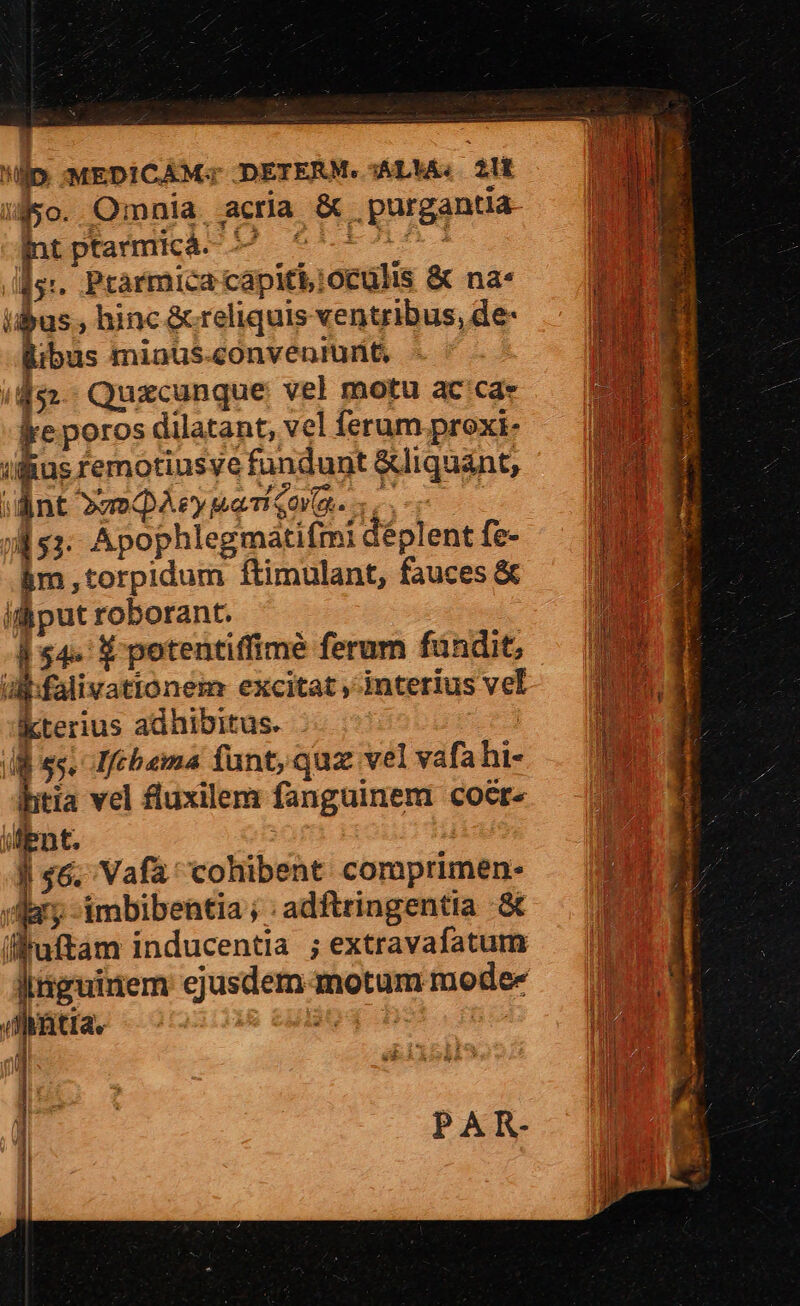 MEDICAM. DETERM. ALIA. 211
50. Omnia acria & purgantia
ptarmica.
Ptarmica capiti, oculis & na-
hinc & reliquis ventribus, de-
minus conveniunt.
52. Quæcunque vel motu ac ca-
poros dilatant, vel ſerum proxi-
remotiusve fundunt & liquant,
ἀποφλεγματίζοντα.
53. Apophlegmatiſmi deplent ſe-
torpidum ſtimulant, fauces &
roborant.
54. ☿ potentiſſimè ſerum fundit,
ſalivationem excitat, interius vel
adhibitus.
55. Iſchema ſunt, quæ vel vaſa hi-
vel fluxilem ſanguinem coër-
56. Vaſa cohibent comprimen-
imbibentia; adſtringentia &
inducentia; extravaſatum
ejusdem motum mode-
PAR-